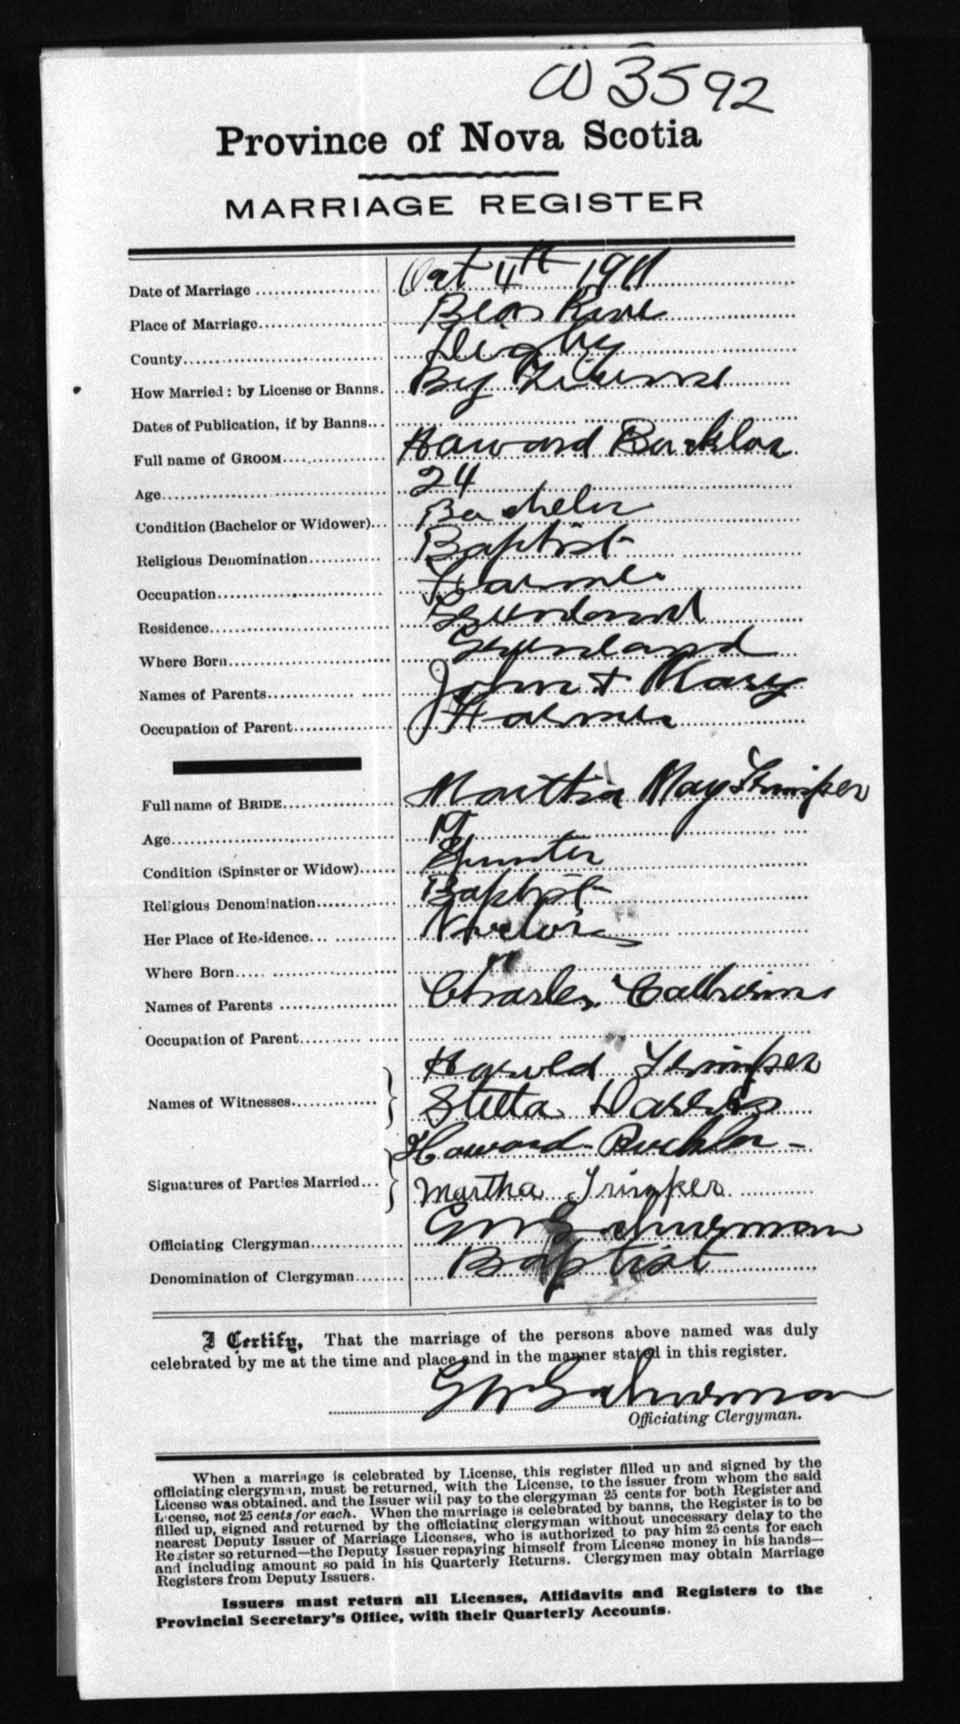 3592
Province of Nova Scotia
MARRIAGE REGISTER
Date of Marriage Oct 4th 1911
Place of Marriage Bear River
County Digby
How Married: by License or Banns. By License
Dates of Publication, if by Banns
Full name of GROOM Howard Buckler
Age 24
Condition (Bachelor or Widower) Bachelor
Religious Denomination Baptist
Occupation Farmer
Residence Greenland
Where Born Greenland
Names of Parents John & Mary
Occupation of Parent Farmer
Full name of BRIDE Martha May Trimper
Age
Condition (Spinster or Widow) Spinster
Religious Denomination Baptist
Her Place of Residence Victoria
Where Born "
Names of Parents Charles Catherine
Occupation of Parent
Harold Trimper
Names of Witnesses Stella Harris
Howard Buckler
Signatures of Parties Married Martha Trimper
Officiating Clergyman Schurman
Denomination of Clergyman Baptist
I Certify, That the marriage of the persons above named was duly
celebrated by me at the time and place and in the manner stated in this register.
Schurman
Officiating Clergyman.
When a marriage is celebrated by License, this register filled up and signed by the
officiating clergyman, must be returned, with the License, to the issuer from whom the said
License was obtained, and the Issuer will pay to the clergyman 25 cents for both Register and
License, not 25 cents for each. When the marriage is celebrated by banns, the Register is to be
filled up, signed and returned by the officiating clergyman without unecessary delay to the
nearest Deputy Issuer of Marriage Licenses, who is authorized to pay him 25 cents for each
Register so returned—the Deputy Issuer repaying himself from License money in his hands—
and including amount so paid in his Quarterly Returns. Clergymen may obtain Marriage
Registers from Deputy Issuers.
Issuers must return all Licenses, Affidavits and Registers to the
Provincial Secretary's Office, with their Quarterly Accounts.